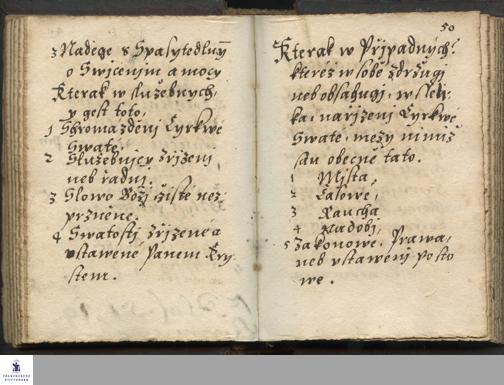 3 Naděge s Spasytedlnau
o Swiceniu a mocy
Kterak w služebnych,
y gest toto,
1 Shromažděnj Cyrkwe
Swate.
2 Služebnicy zřjzeni
neb řadni.
3 Slowo Božj čisté nez
przněne.
4 Swatosti zřjzené a
vstawené Panem Kry
stem.
50
Kterak w Přjpadných:
kteréž w sobě zdržugj
neb obsahugj,
ka, nařjzenj Cyrkwe
Swaté, mezy nimiž
sau obecné tato.
1 Mjsta,
2 Časowé,
3 Raucha
4 Nádobj,
5 Zakonowe, Prawa,
neb vstawenj posto
we.
FRANCKESCHE
STIFTUNGEN